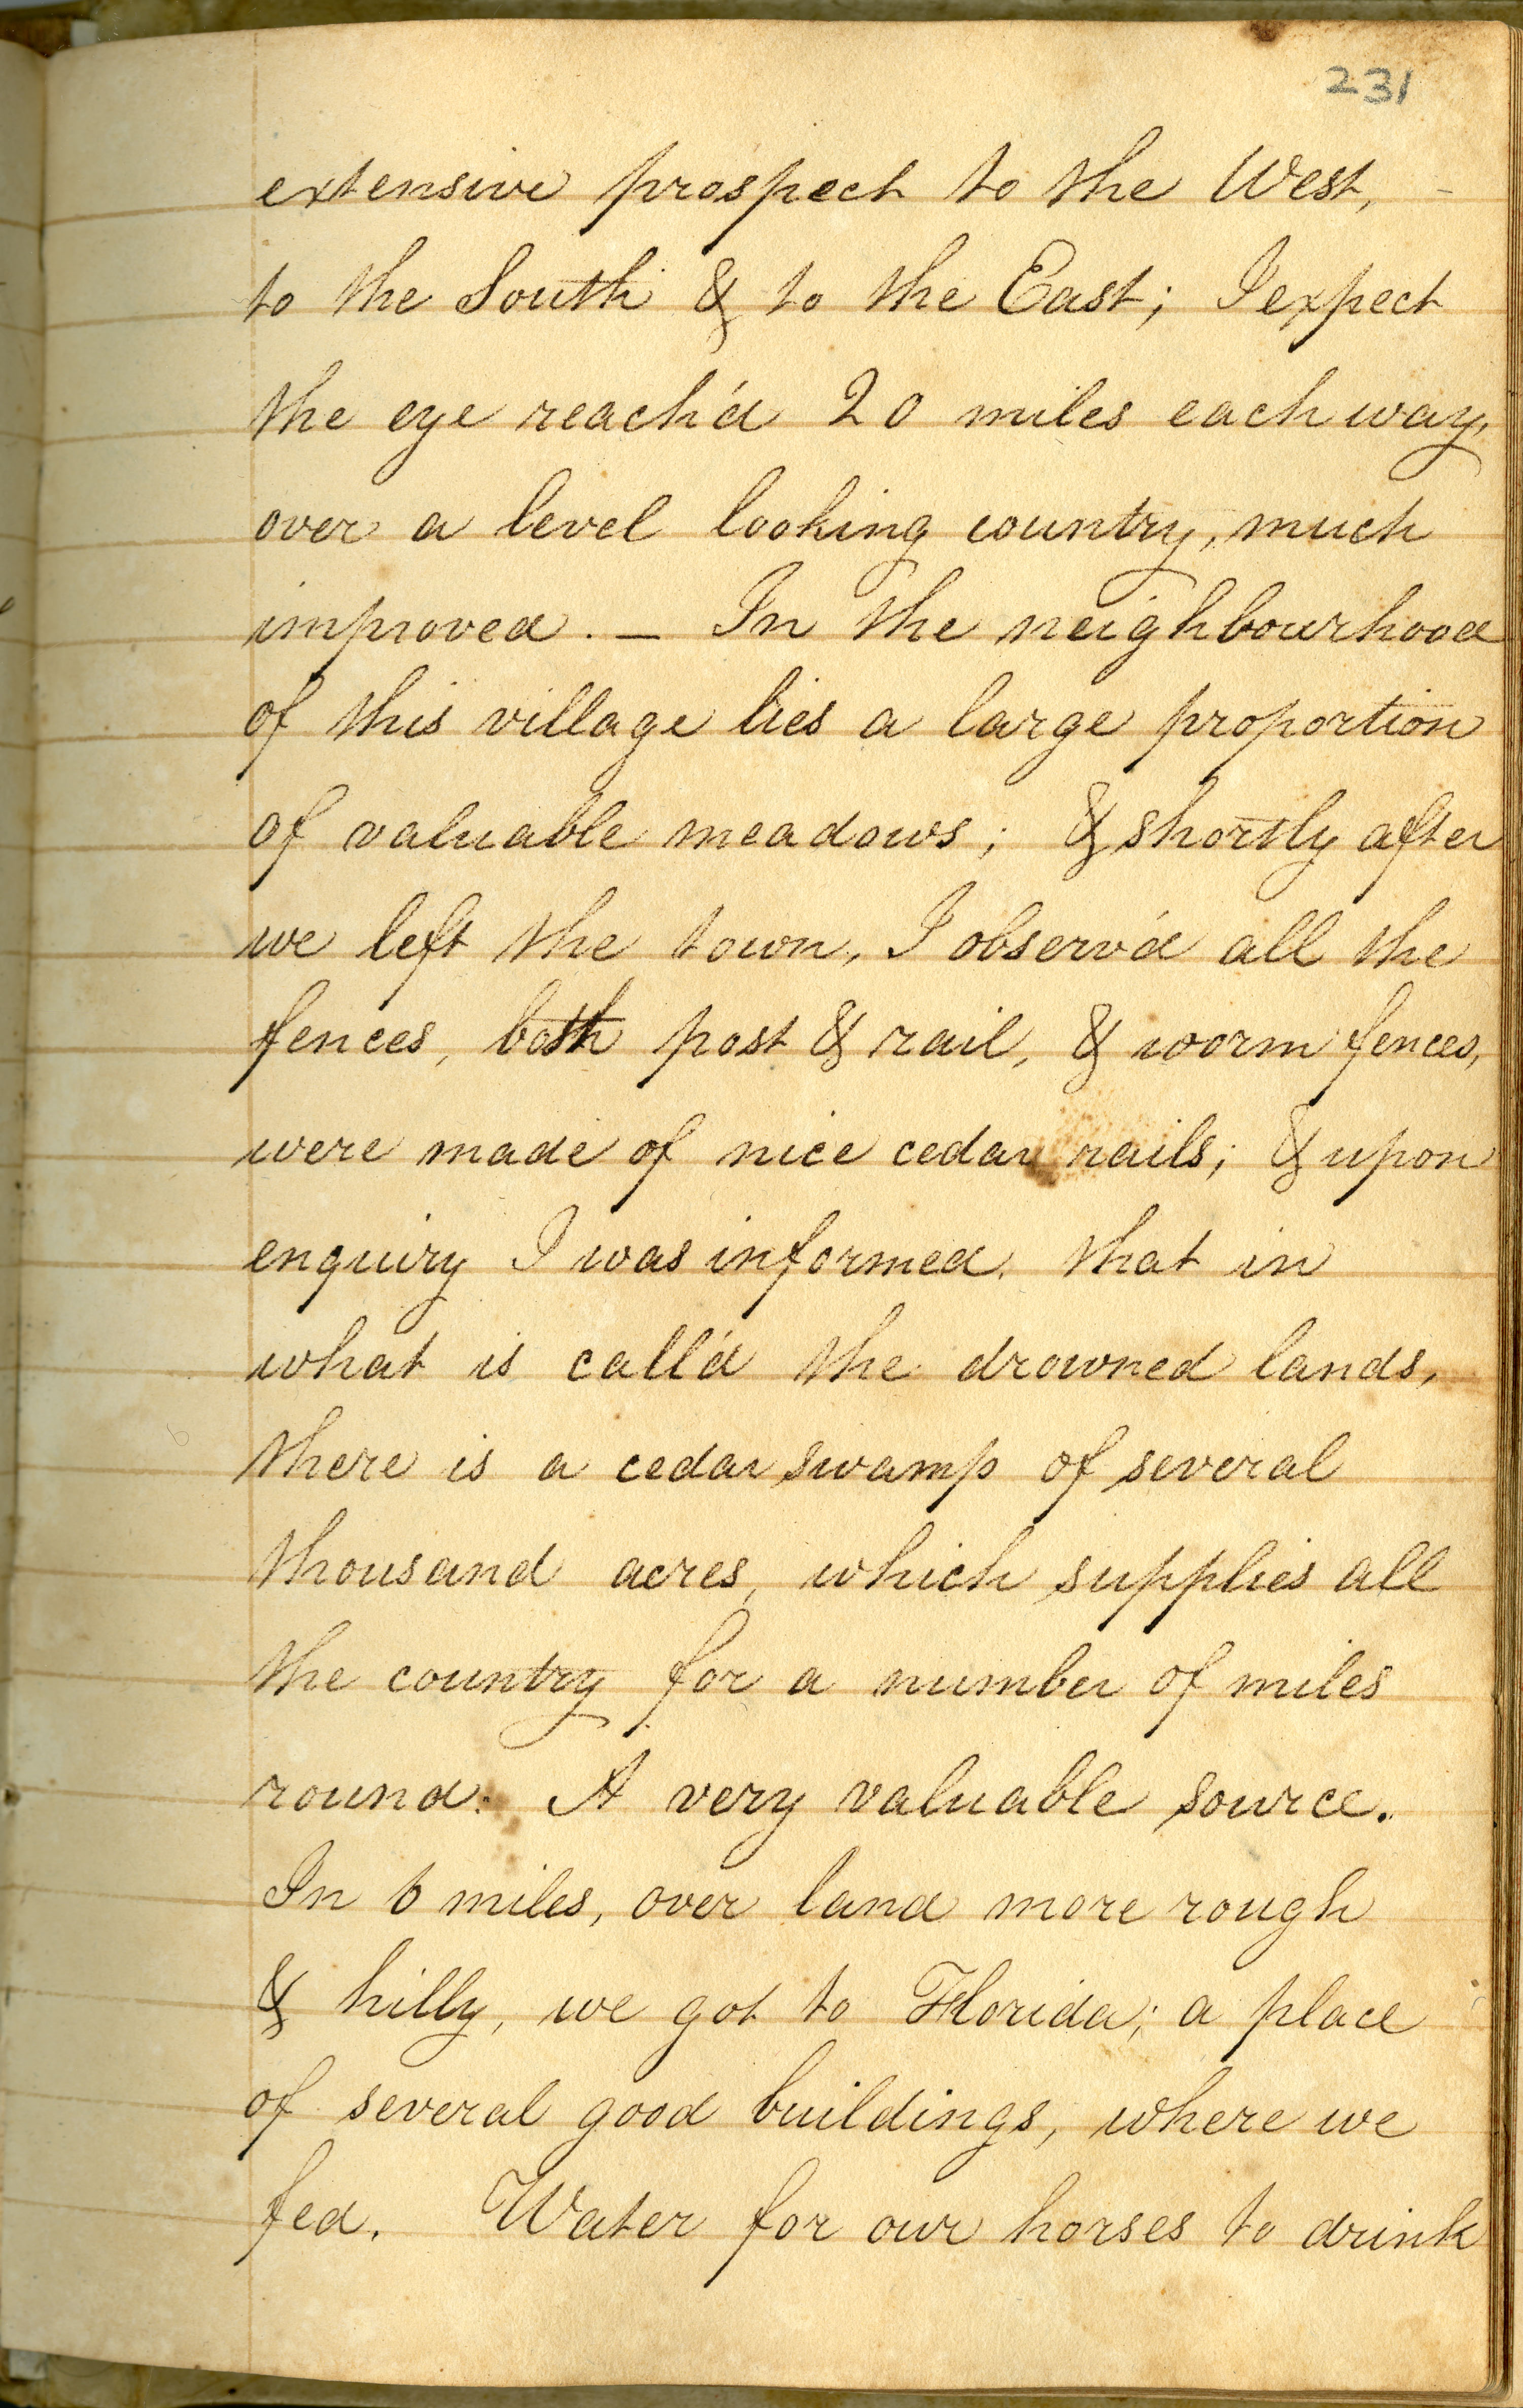 231
extensive prospect to the West, -
to the South & to the East; I expect
the eye reach'd 20 miles each way,
over a level looking country, much
improved. — In the neighbourhood
of this village lies a large proportion
of valuable meadows; & shortly after
we left the town, I observ'd all the
fences, both post & rail, & worm fences,
were made of nice cedar rails; & upon
enquiry I was informed, that in
what is call'd the drowned lands,
there is a cedar swamp of several
thousand acres, which supplies all
the country for a number of miles
round: A very valuable source.
In 6 miles, over land more rough
& hilly, we got to Florida; a place
of several good buildings, where we
fed. Water for our horses to drink